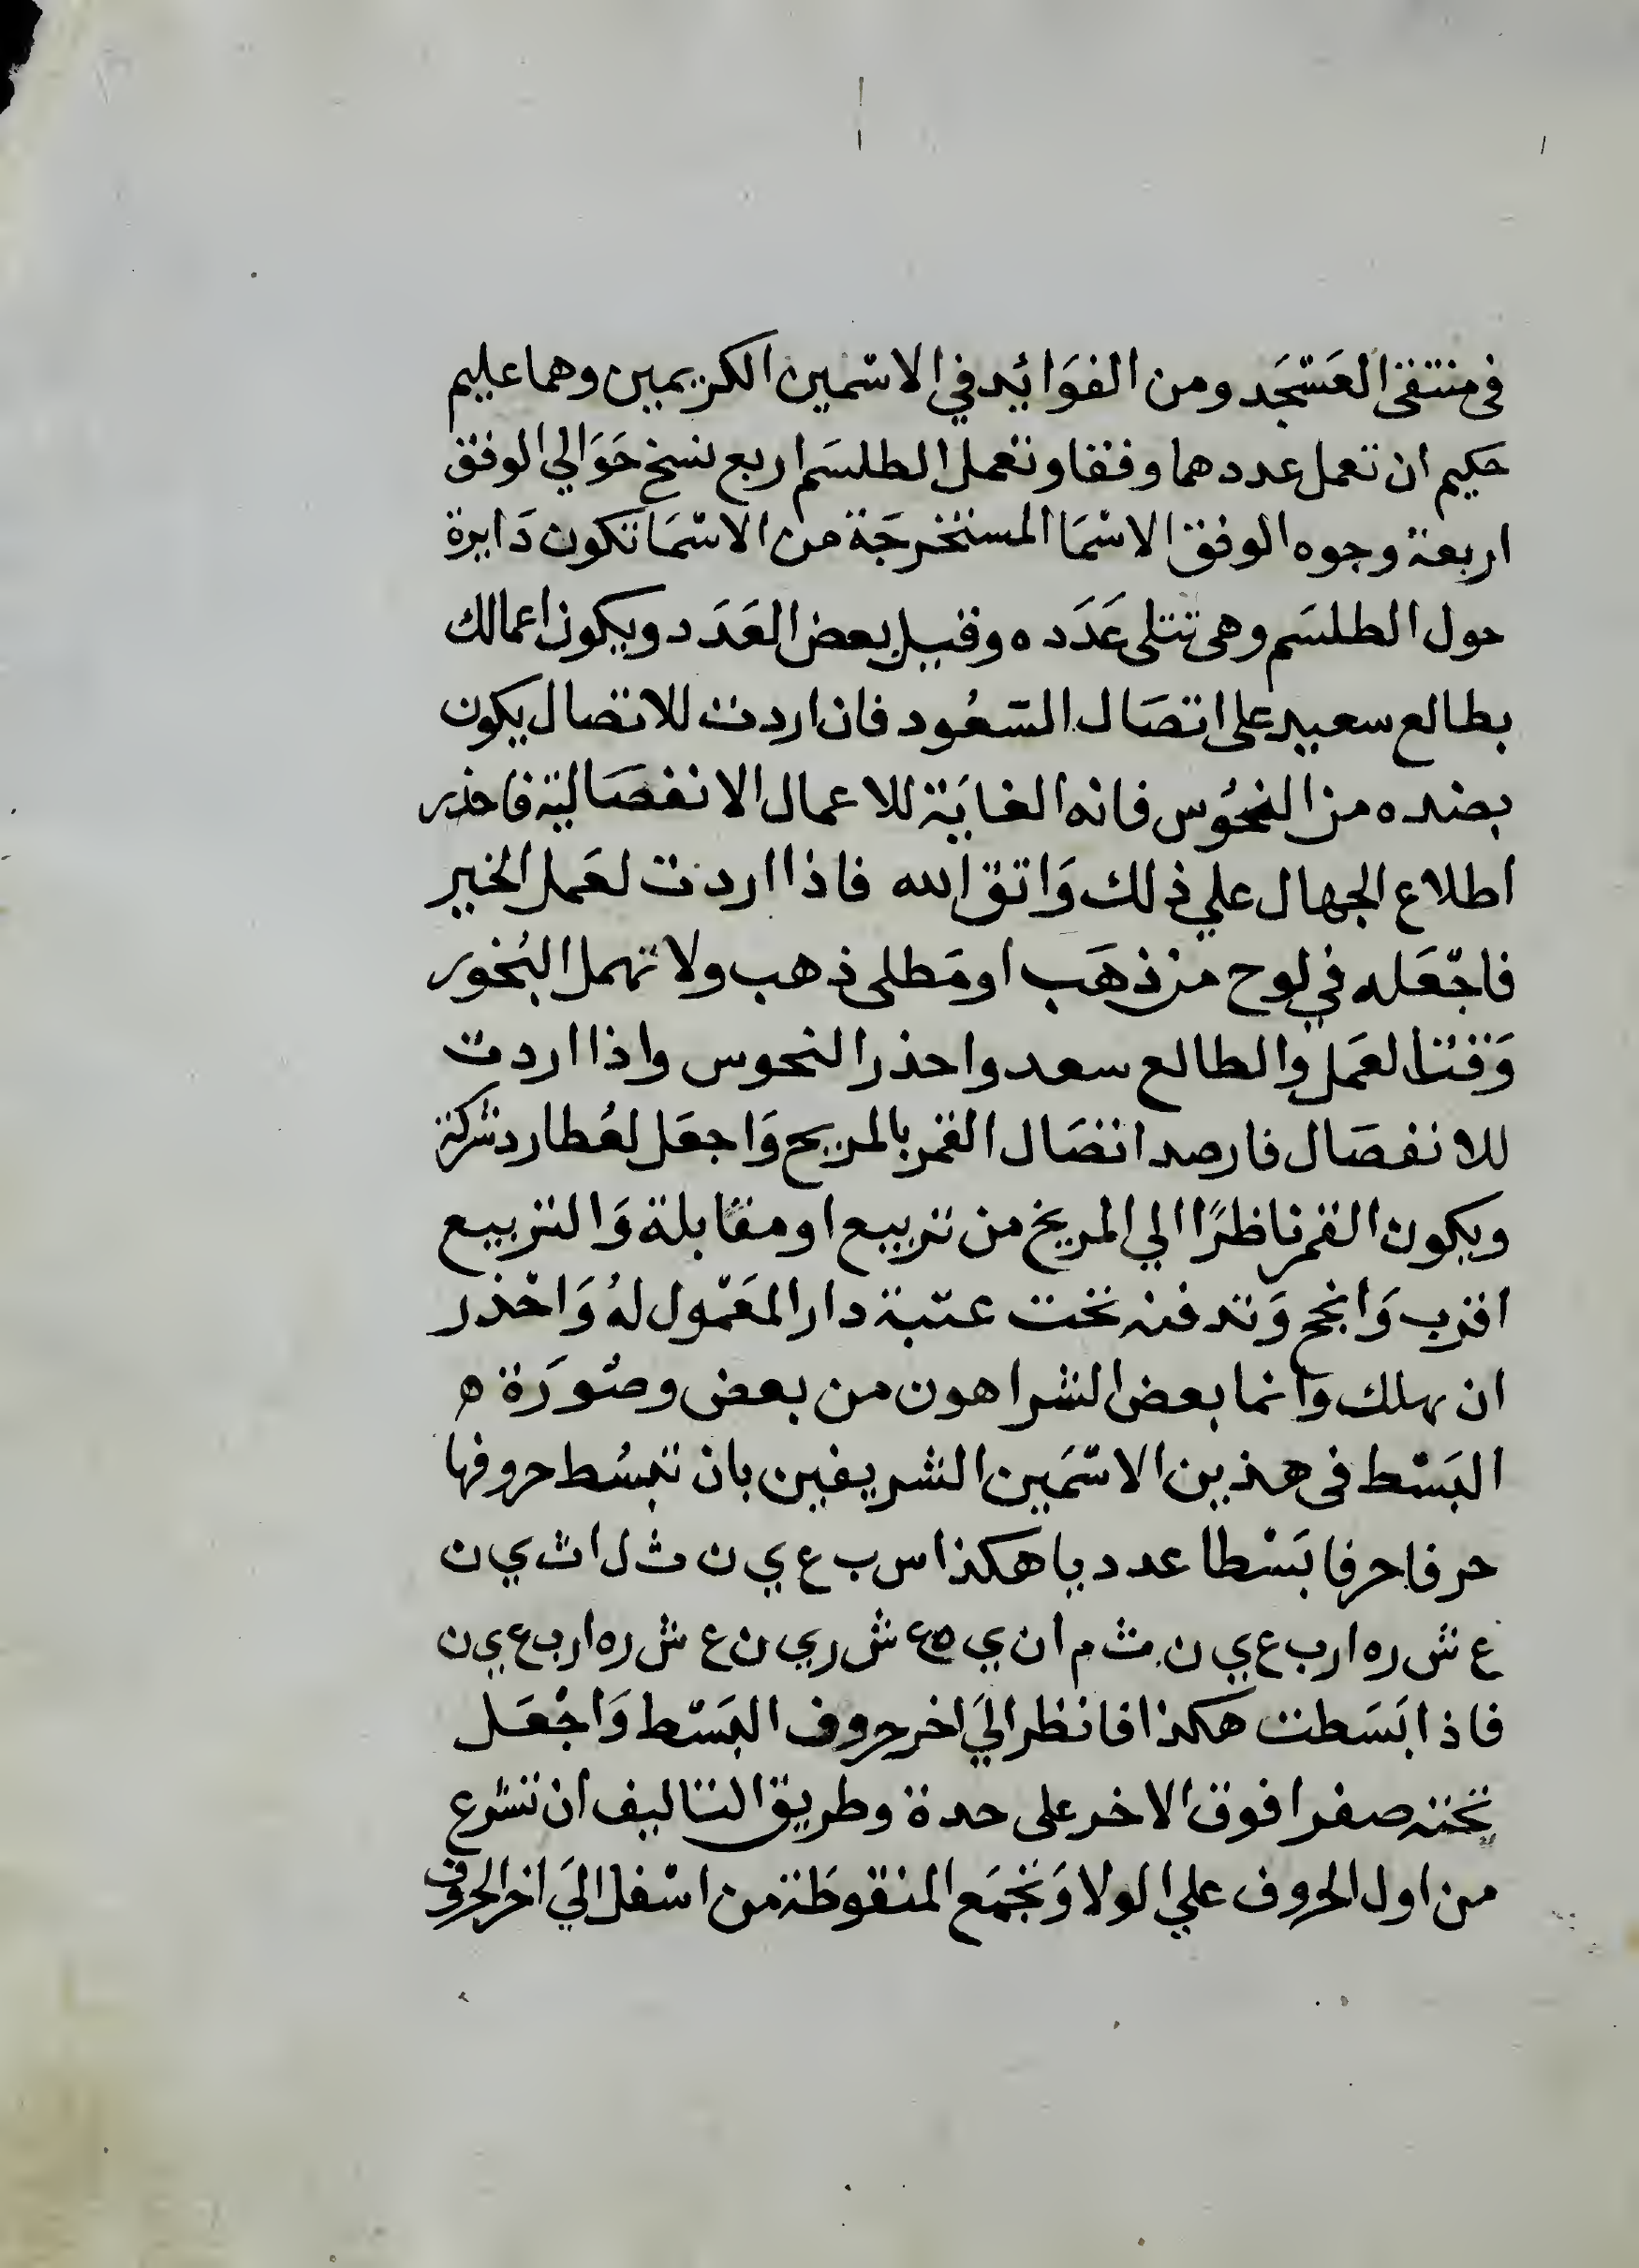 في منتقى العَسْجَد ومن الفوَائد في الاسْمين الكريمين وهما عليم
حكيم ان تعمل عددهما وفقا وتعمل الطلسَم اربع نسخ حَوَالي الوفق
اربعة وجوه الوفق الاسْمَا المستخرجَة من الاسْمَا تكون دَايرة
حول الطلسَم وهى تتلى عَدَده وقيل بعض العَدَد ويكون اعمالك
بطالع سعيد على اتصَال السّعُود فان اردت للاتصال يكون
بضده من النحُوس فانه الغايَة للاعمال الانفصَالية فاحذر
اطلاع الجهال علي ذلك وَاتق الله فاذا اردت لعَمل الخير
فاجْعَله في لوح من ذهَب او مَطلى ذهب ولا تهمل البُخور
وَقت العَمل والطالع سعد واحذر النحوس واذا اردت
للانفصَال فارصد اتصَال القمر بالمريخ وَاجعَل لعُطارد شركة
ويكون القمر ناظرًا الي المريخ من تربيع او مقابلة وَالتربيع
اقرب وَانجح وَتدفنه تحت عتبة دار المعَمْول لهُ وَاحْذر
ان يهلك وانما بعض الشر اهون من بعض وصُورَة ه
البَسْط فى هذين الاسْمَين الشريفين بان تبسُط حروفها
حرفا حرفا بَسْطا عدديا هكذا س ب ع ي ن ث ل ا ث ي ن
ع ش ر ه ا ر ب ع ي ن ث م ا ن ي ه ع ش ر ي ن ع ش ر ه ا ر ب ع ي ن
فاذا بَسَطت هكذا فانظر اليَ اخر حروف البَسْط وَاجْعَل
تحته صفرا فوق الاخر على حدة وطريق التاليف ان تشرع
من اول الحروف علي الولا وَتجمَع المنقوطَة من اسْفل اليَ اخر الحروف